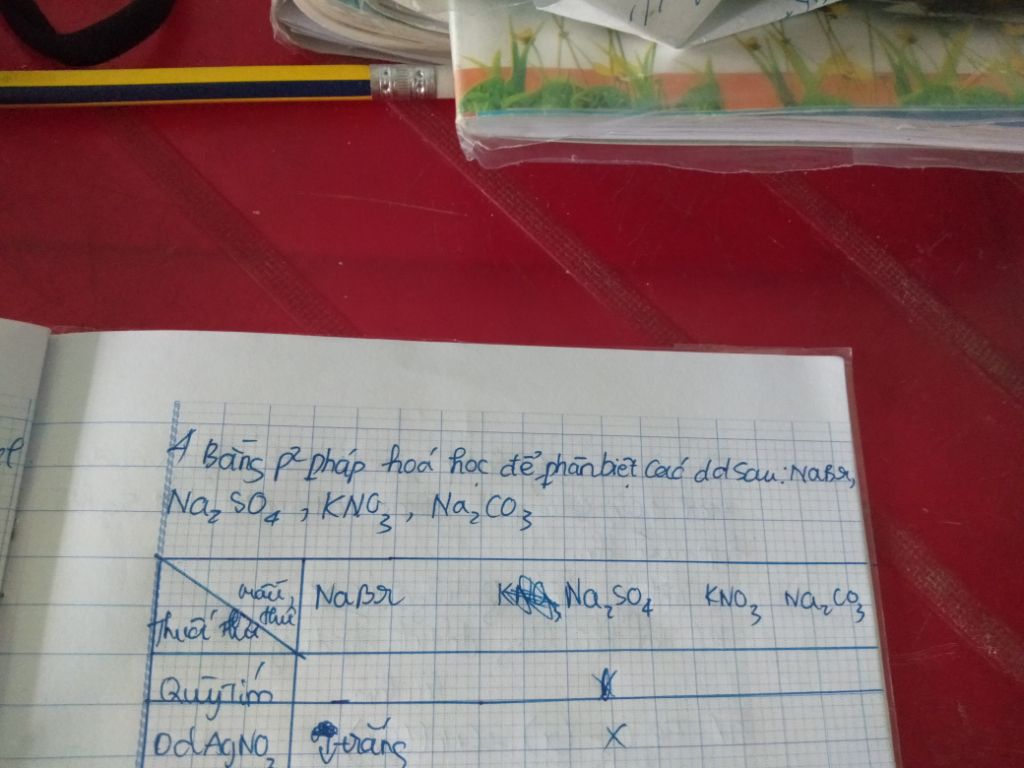 1 Bằng p² pháp hoá học để phân biệt các dd sau: NaBr,
Na₂SO₄, KNO₃, Na₂CO₃
mẫu thử NaBr Na₂SO₄ KNO₃ Na₂CO₃
thuốc thử
Quỳ tím _ X
Dd AgNO₃ ↓trắng X